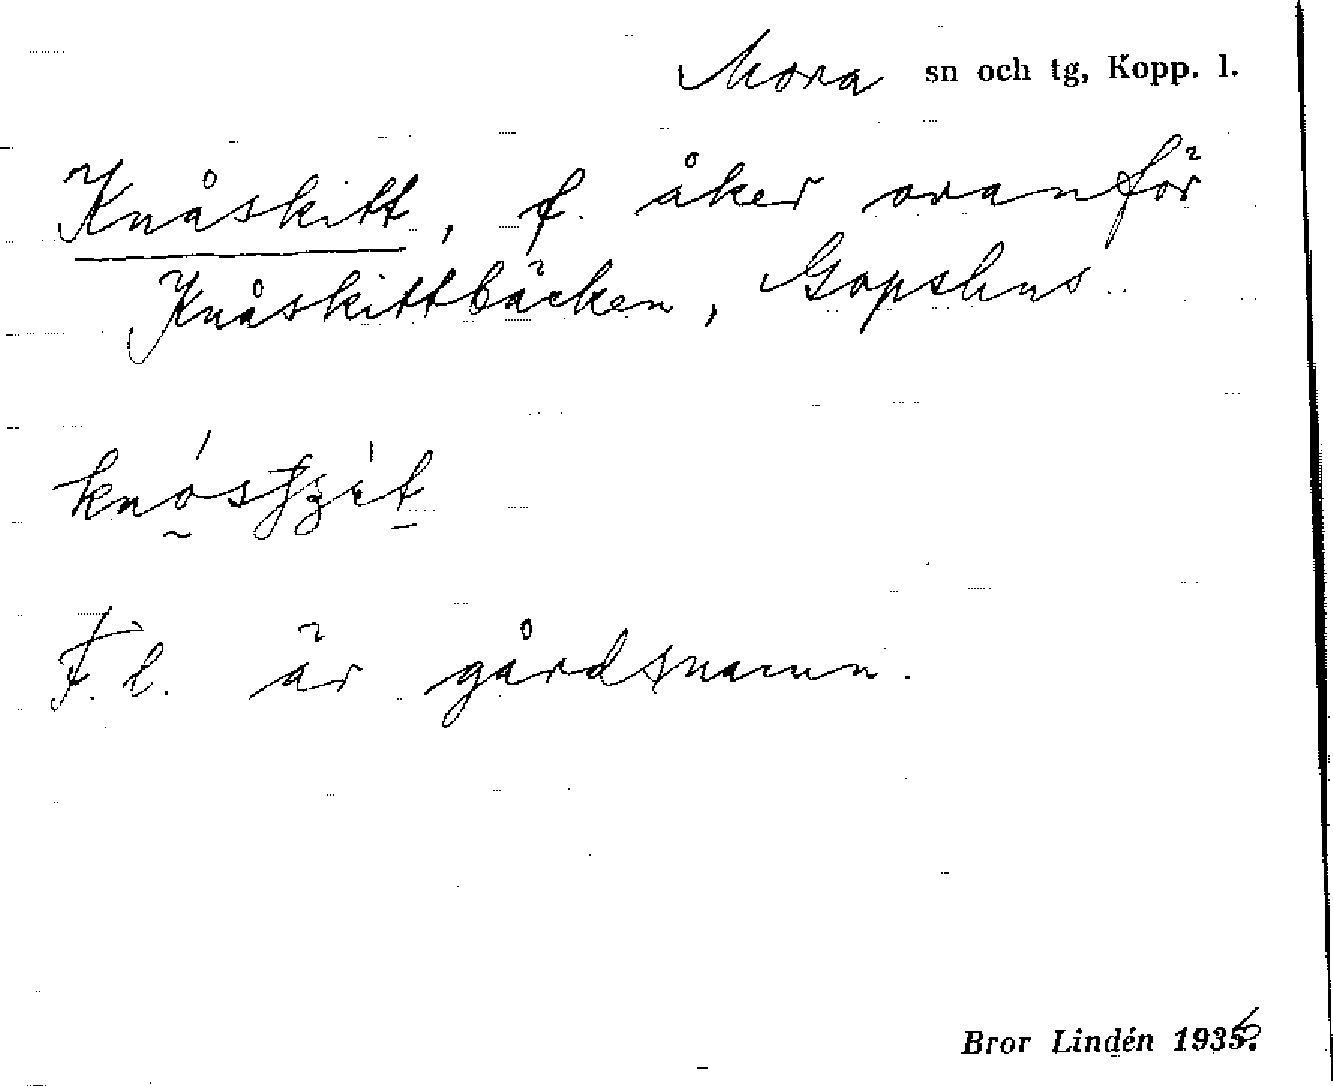 Mora sn och tg, Kopp. l.
Knåskitt, f. åker ovanför
Knåskittbäcken, Gopshus.
F. l. är gårdsnamn.
Bror Lindén 1936.